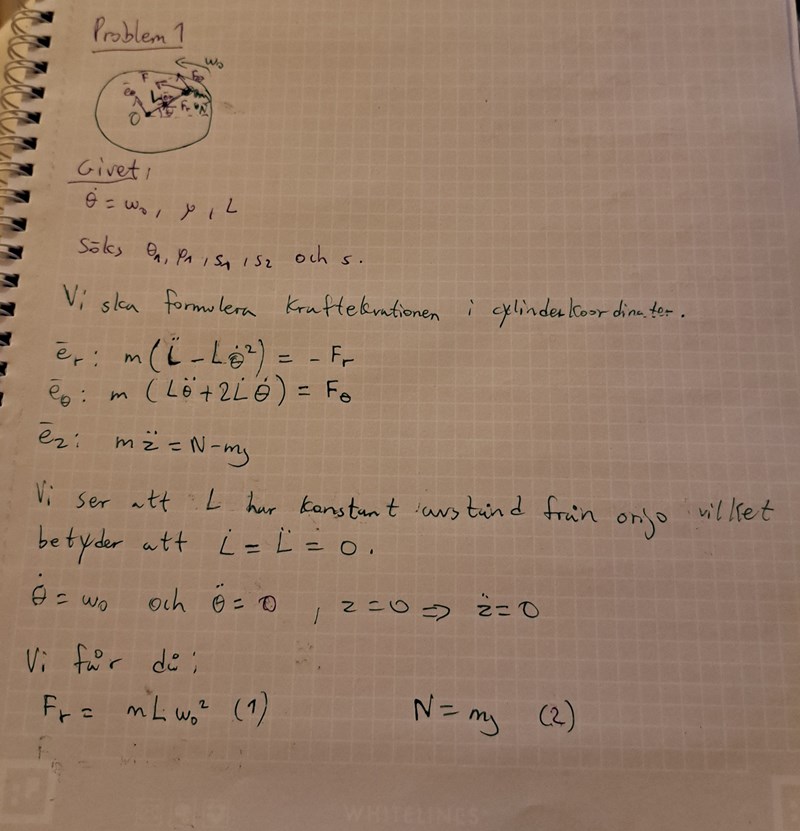 Problem 1
ω₀
F
F_θ
ē_θ
L
F_r
N
O
Givet:
θ̇ = ω₀, μ, L
Söks θ₁, μ₁, s₁, s₂ och s.
Vi ska formulera kraftekvationen i cylinderkoordinater.
ē_r: m(L̈ - Lθ̇²) = - F_r
ē_θ: m (Lθ̈ + 2L̇θ̇) = F_θ
ē_z: m z̈ = N - mg
Vi ser att L har konstant avstånd från origo vilket
betyder att L̇ = L̈ = 0.
θ̇ = ω₀ och θ̈ = 0, z = 0 ⇒ z̈ = 0
Vi får då:
F_r = mLω₀² (1) N = mg (2)
WHITELINES